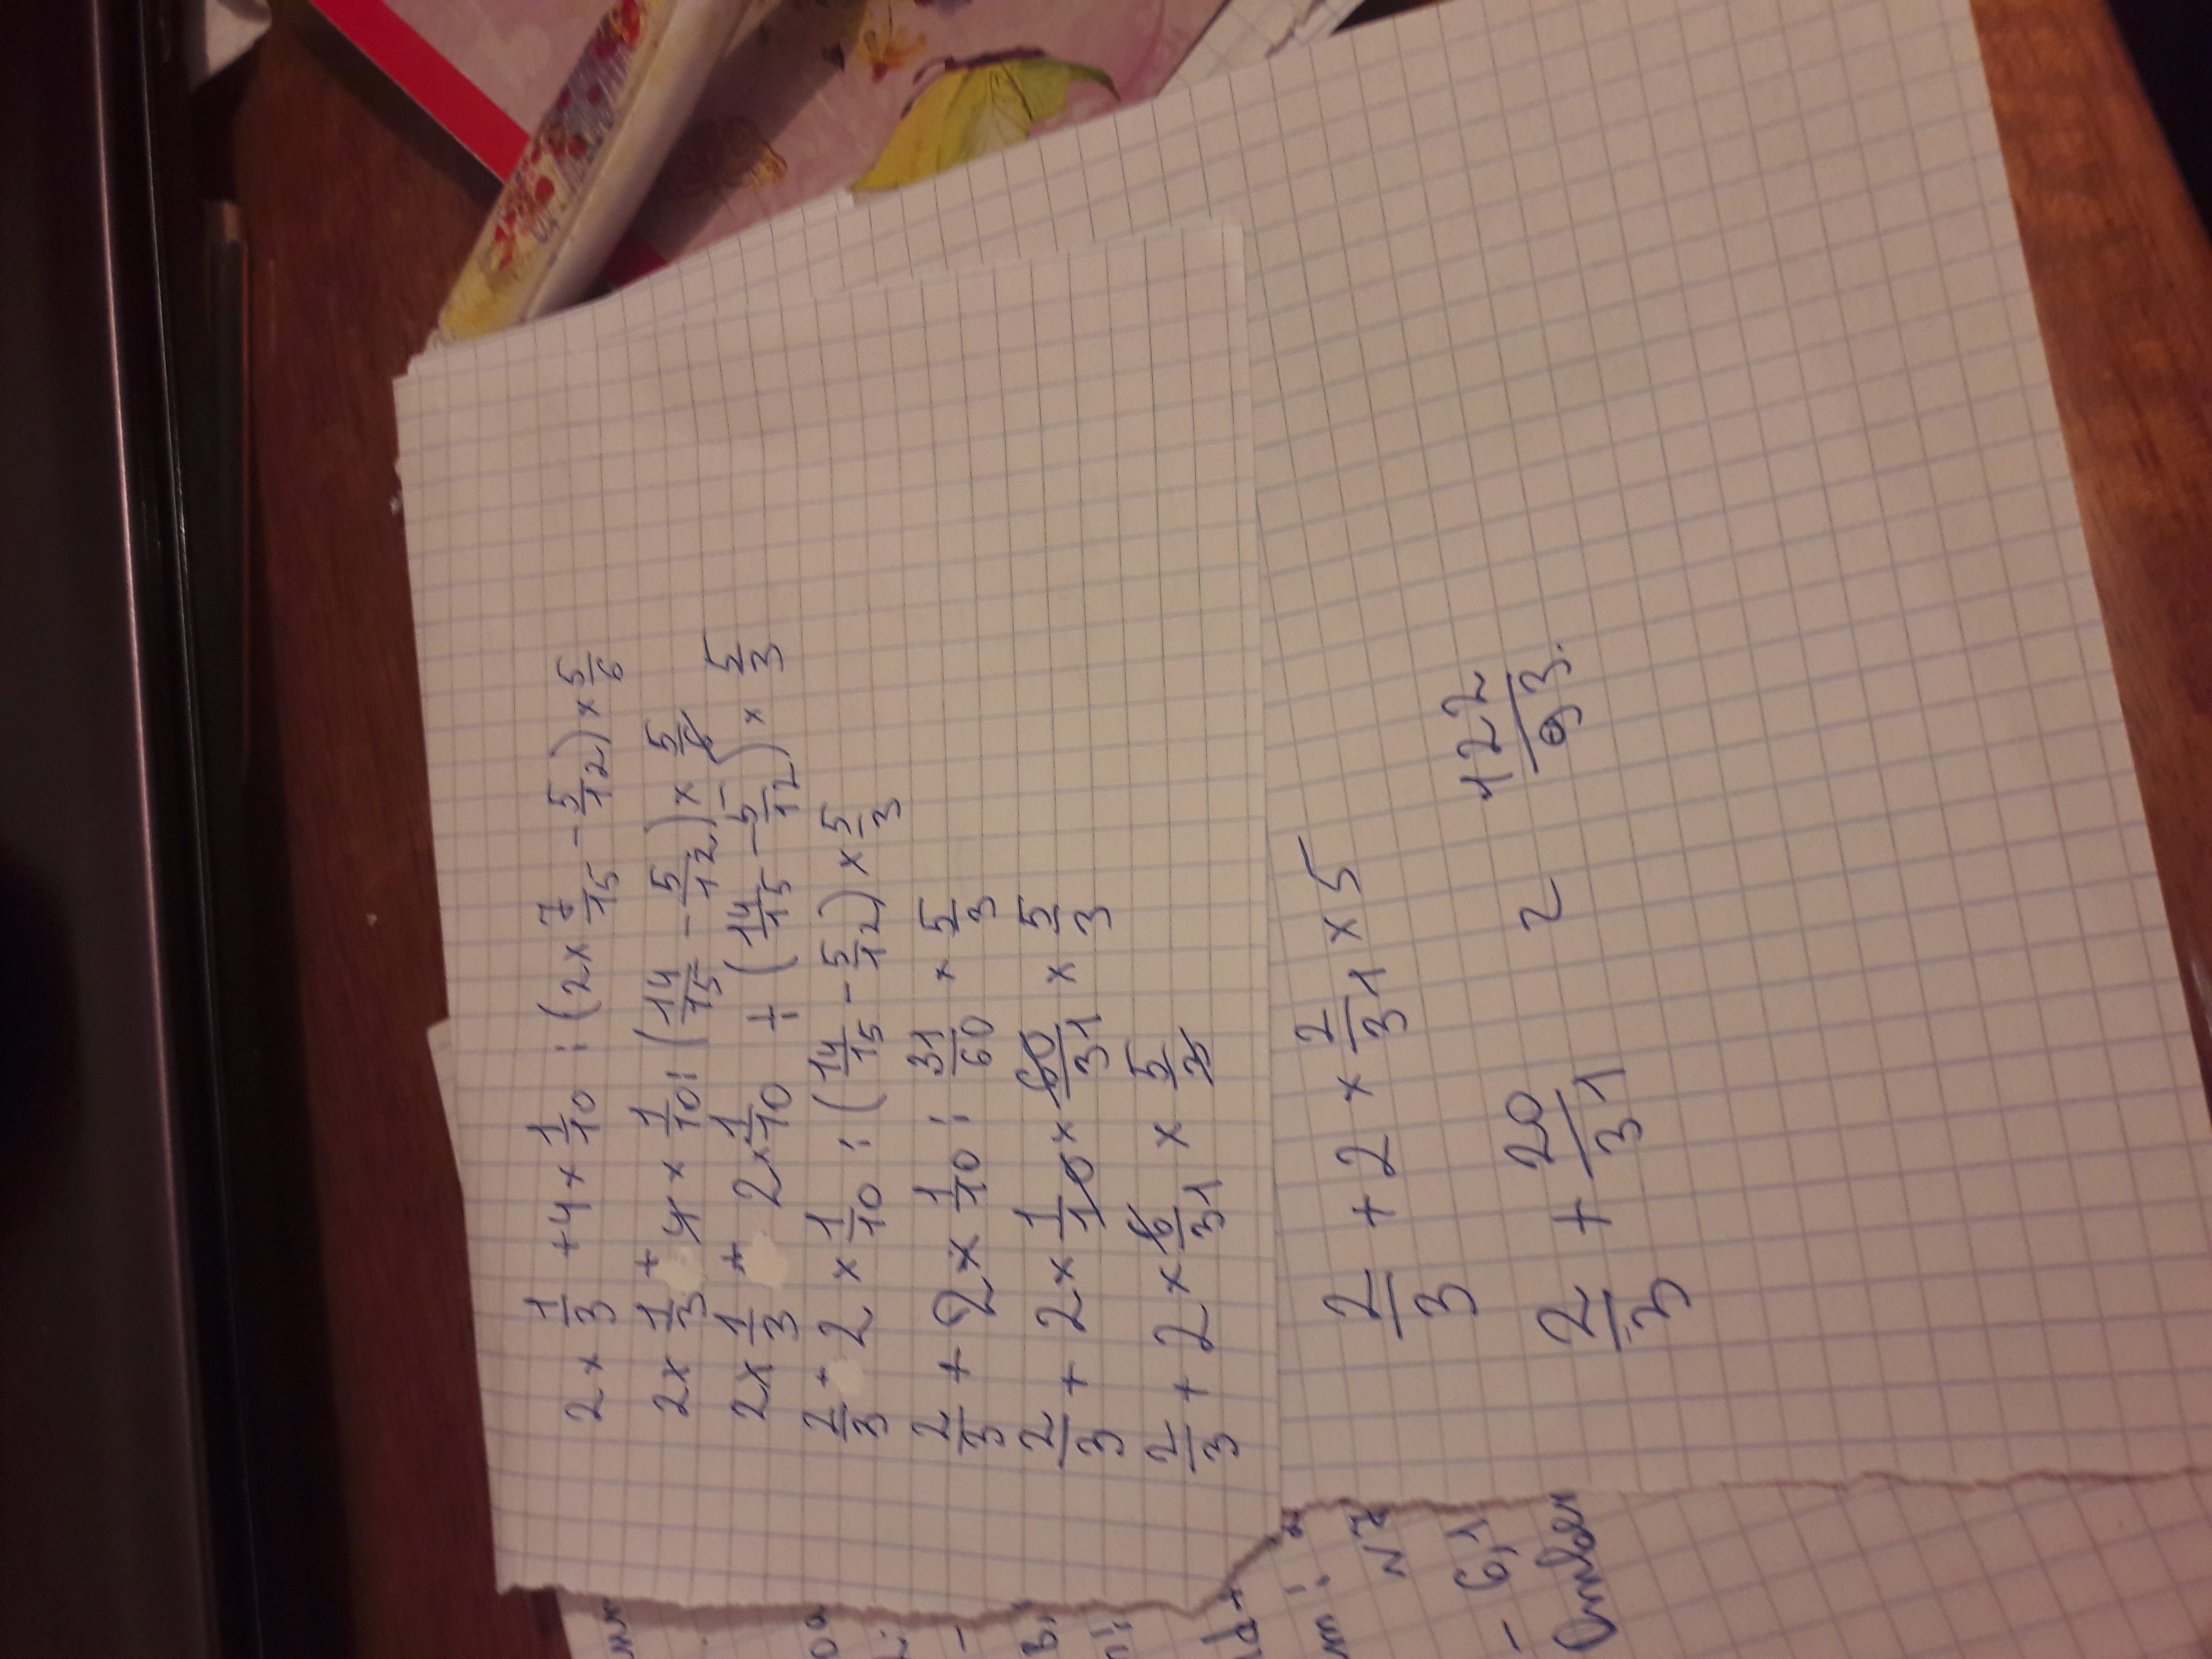 2 × 1/3 + 4 × 1/10 : (2 × 7/15 - 5/12) × 5/6
2 × 1/3 + 4 × 1/10 : (14/15 - 5/12) × 5/6
2 × 1/3 + 2 × 1/10 ÷ (14/15 - 5/12) × 5/3
2/3 + 2 × 1/10 : (14/15 - 5/12) × 5/3
2/3 + 2 × 1/10 : 31/60 × 5/3
2/3 + 2 × 1/10 × 60/31 × 5/3
2/3 + 2 × 6/31 × 5/3
2/3 + 2 × 2/31 × 5
2/3 + 20/31 2 122/93.
- 6,1